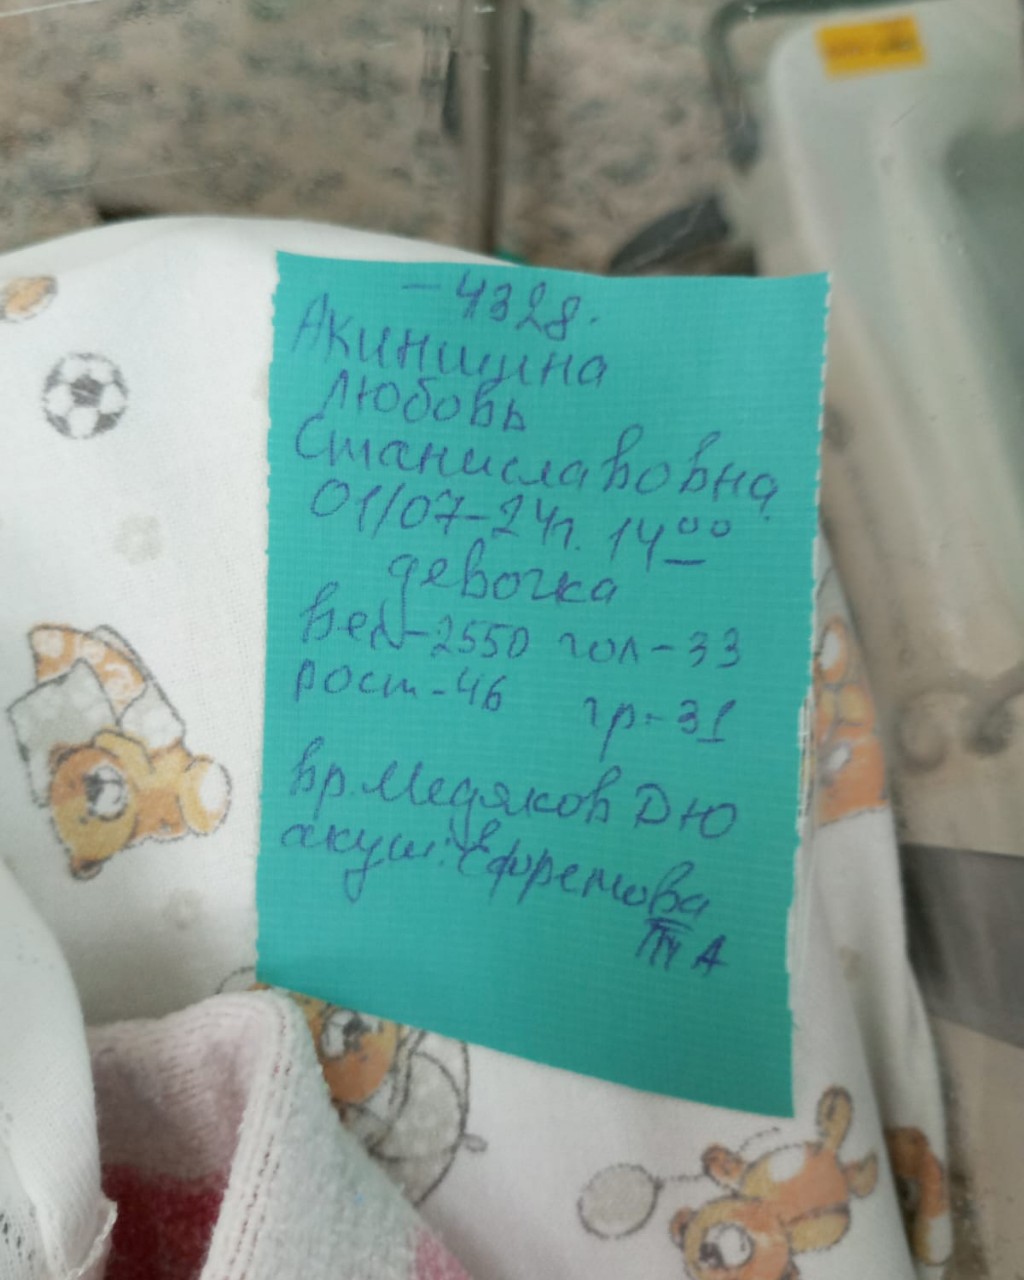 - 4328.
Акиншина
Любовь
Станиславовна
01/07-24г. 14⁰⁰
девочка
вес-2550 гол-33
рост-46 гр-31
вр. Медяков Д Ю
акуш: Ефремова
III A